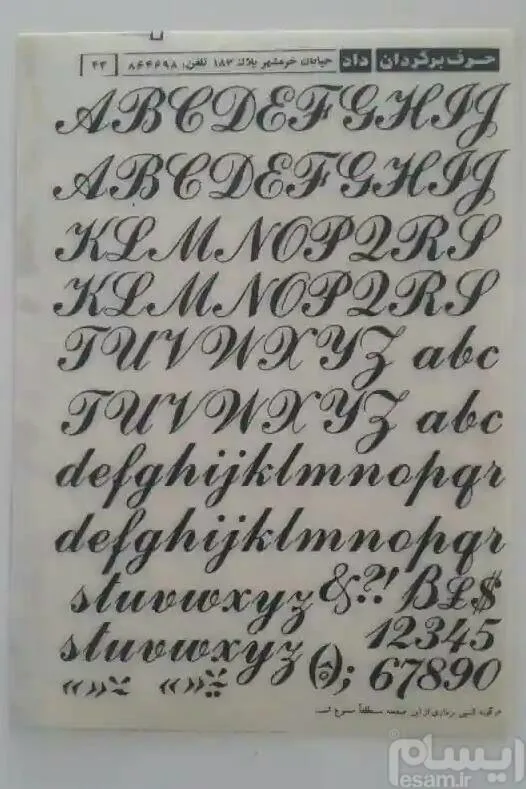 حرف برگردان داد خیابان خرمشهر پلاک ۱۸۳ تلفن: ۸۶۴۶۹۸ ۴۳
ABCDEFGHIJ
ABCDEFGHIJ
KLMNOPQRS
KLMNOPQRS
TUVWXYZ abc
TUVWXYZ abc
defghijklmnopqr
defghijklmnopqr
stuvwxyz &?! ßL$
stuvwxyz 12345
(); 67890
هرگونه کپی برداری از این صفحه مطلقاً ممنوع است
ایسام
esam.ir